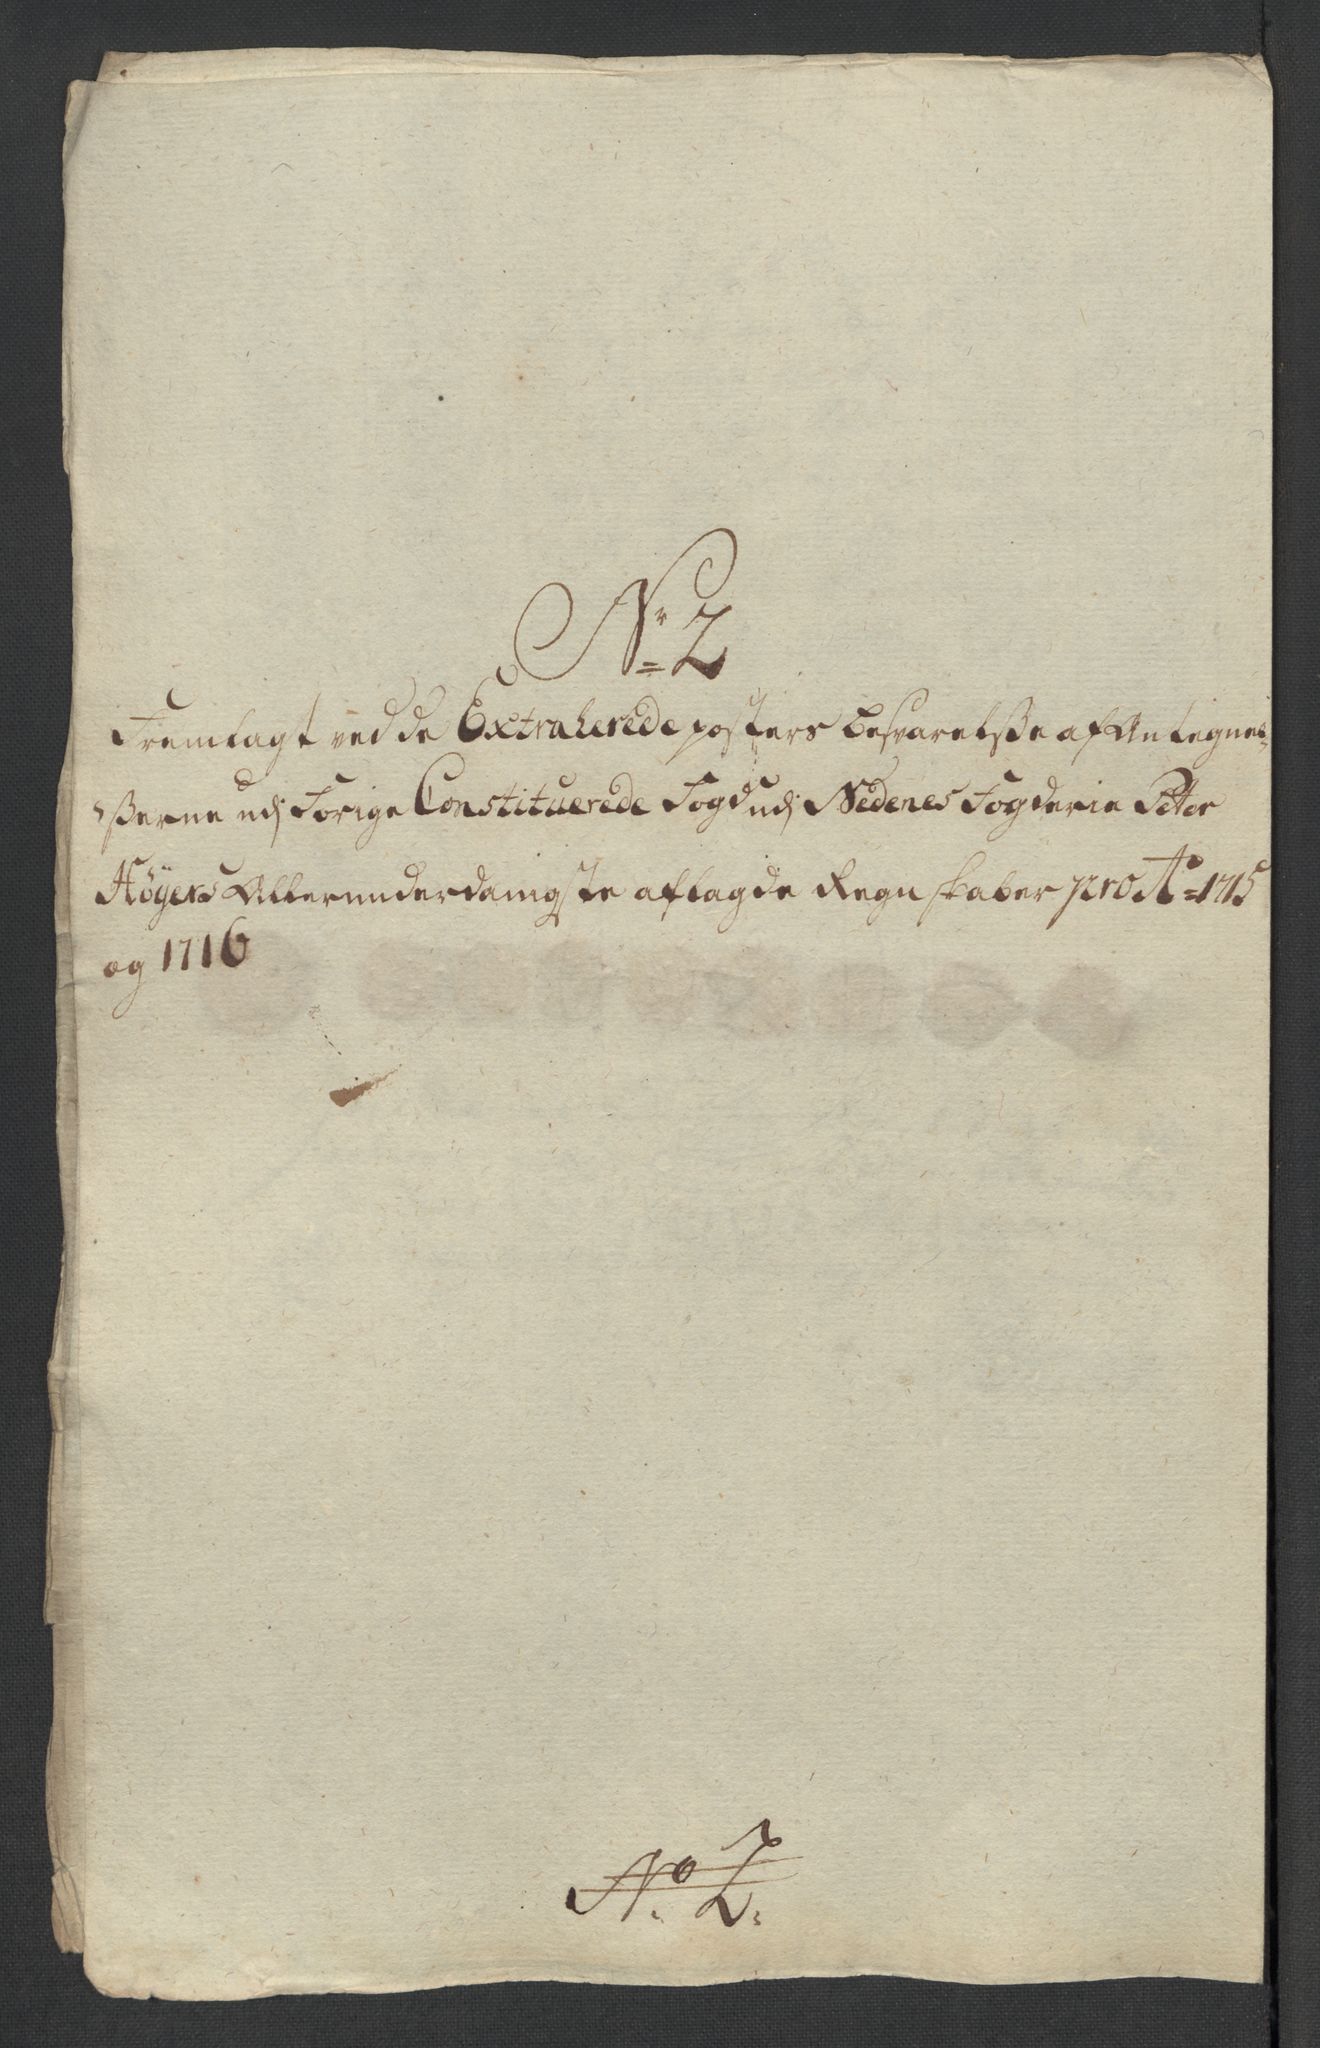 Nr 2
Fremlagt ved de Extraherede posters besvarelsße af Antegnel-
ßerne udj Forige Constituerede Fogd udj Nedenes Fogderie Peter
Høyers Allerunderdanigste aflagde Regnskaber pro Ao 1715
og 1716
No. 2.